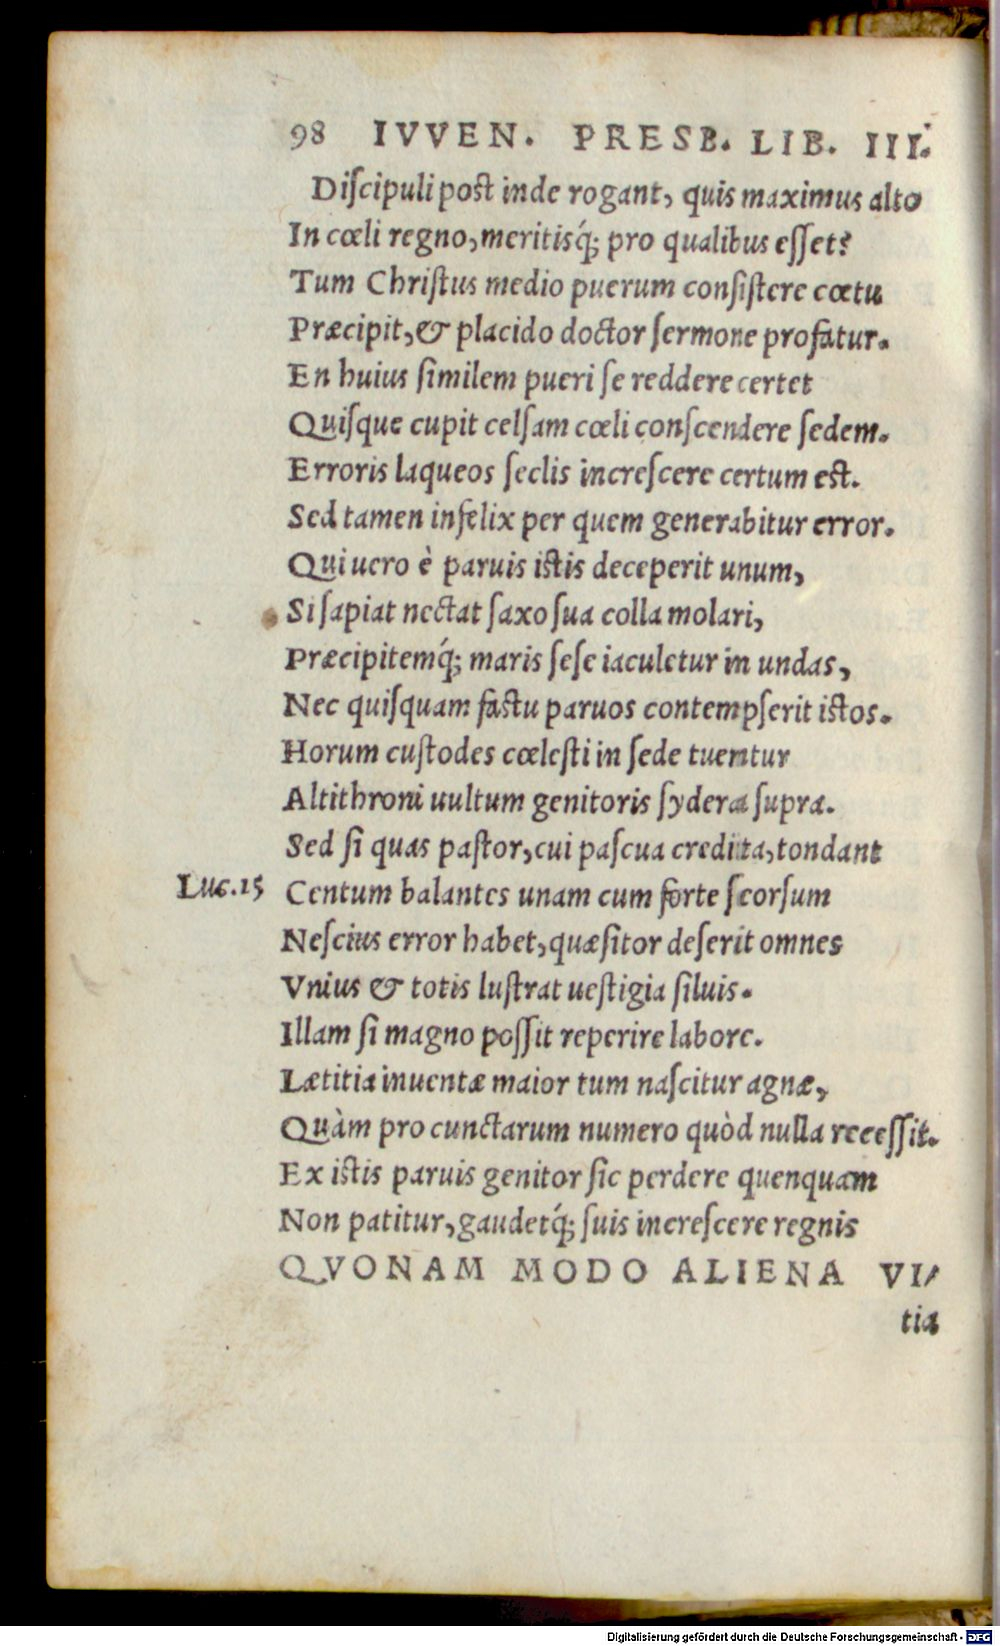 98 IVVEN. PRESB. LIB. III.
Diſcipuli poſt inde rogant, quis maximus alto
In cœli regno, meritisq́; pro qualibus eſſet?
Tum Chriſtus medio puerum conſiſtere cœtu
Præcipit, & placido doctor ſermone profatur.
En huius ſimilem pueri ſe reddere certet
Quiſque cupit celſam cœli conſcendere ſedem.
Erroris laqueos ſeclis increſcere certum eſt.
Sed tamen infelix per quem generabitur error.
Qui uero è paruis iſtis deceperit unum,
Si ſapiat nectat ſaxo ſua colla molari,
Præcipitemq́; maris ſeſe iaculetur in undas,
Nec quiſquam faſtu paruos contempſerit iſtos.
Horum cuſtodes cœleſti in ſede tuentur
Altithroni uultum genitoris ſydera ſupra.
Sed ſi quas paſtor, cui paſcua credita, tondant
Luc. 15 Centum balantes unam cum forte ſeorſum
Neſcius error habet, quæſitor deſerit omnes
Vnius & totis luſtrat ueſtigia ſiluis.
Illam ſi magno poſſit reperire labore.
Lætitia inuentæ maior tum naſcitur agnæ,
Quàm pro cunctarum numero quòd nulla receſſit.
Ex iſtis paruis genitor ſic perdere quenquam
Non patitur, gaudetq́; ſuis increſcere regnis
QVONAM MODO ALIENA VI/
tia
Digitalisierung gefördert durch die Deutsche Forschungsgemeinschaft - DFG